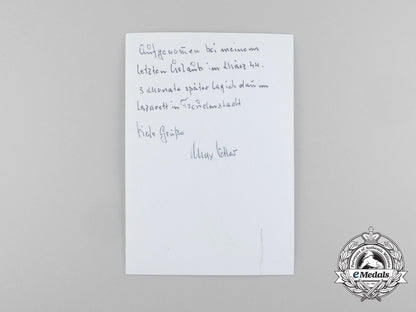 Aufgenomen bei meinem
letzten Urlaub im März 44.
3 Monate später lag ich dan im
Lazarett in Freudenstadt
Viele Grüße
Max
eMedals